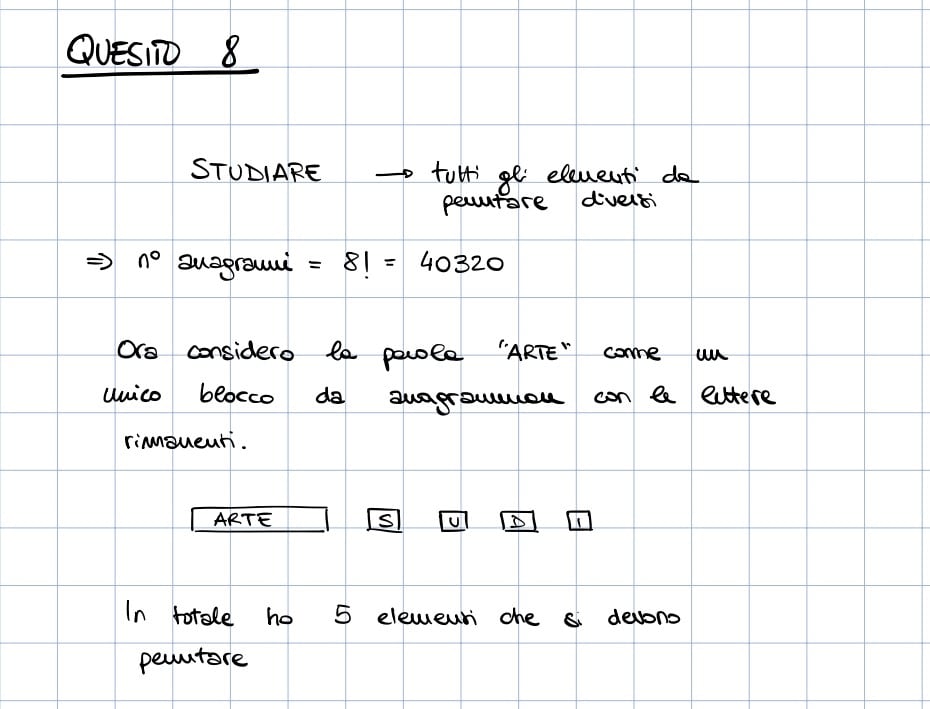 QUESITO 8
STUDIARE → tutti gli elementi da
permutare diversi
⇒ n° anagrammi = 8! = 40320
Ora considero la parola "ARTE" come un
unico blocco da anagrammare con le lettere
rimanenti.
ARTE S U D I
In totale ho 5 elementi che si devono
permutare